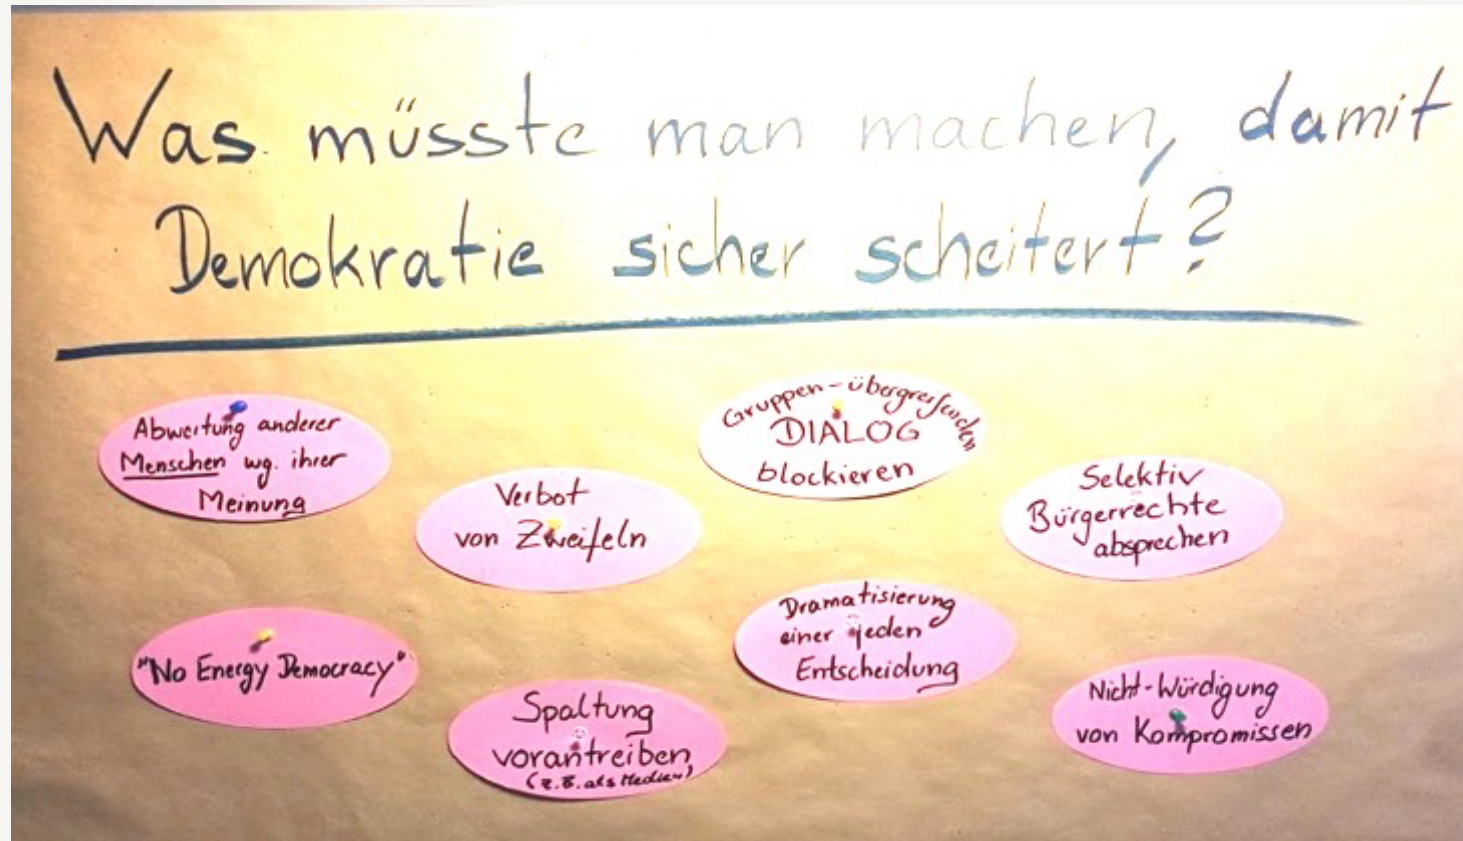 Was müsste man machen, damit
Demokratie sicher scheitert?
Abwertung anderer
Menschen wg. ihrer
Meinung
Verbot
von Zweifeln
Gruppen-übergreifenden
DIALOG
blockieren
Selektiv
Bürgerrechte
absprechen
"No Energy Democracy"
Spaltung
vorantreiben
(z.B. als Medien)
Dramatisierung
einer jeden
Entscheidung
Nicht-Würdigung
von Kompromissen